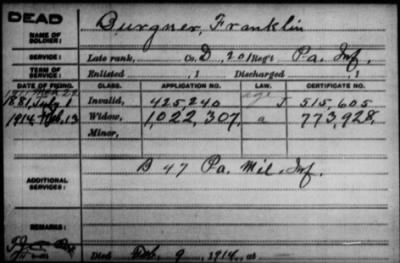 DEAD
NAME OF SOLDIER: Burgner, Franklin
SERVICE: Late rank, Co. D, 201 Reg't Pa. Inf.
TERM OF SERVICE: Enlisted , 1 Discharged , 1
DATE OF FILING. CLASS. APPLICATION NO. LAW. CERTIFICATE NO.
1881 July 1 Invalid, 425,240 J 515,605
1914 Feb. 13 Widow, 1,022,307, a 773,928,
Minor,
ADDITIONAL SERVICES: B 47 Pa. Mil. Inf.
REMARKS:
Died Feb. 9, 1914, at